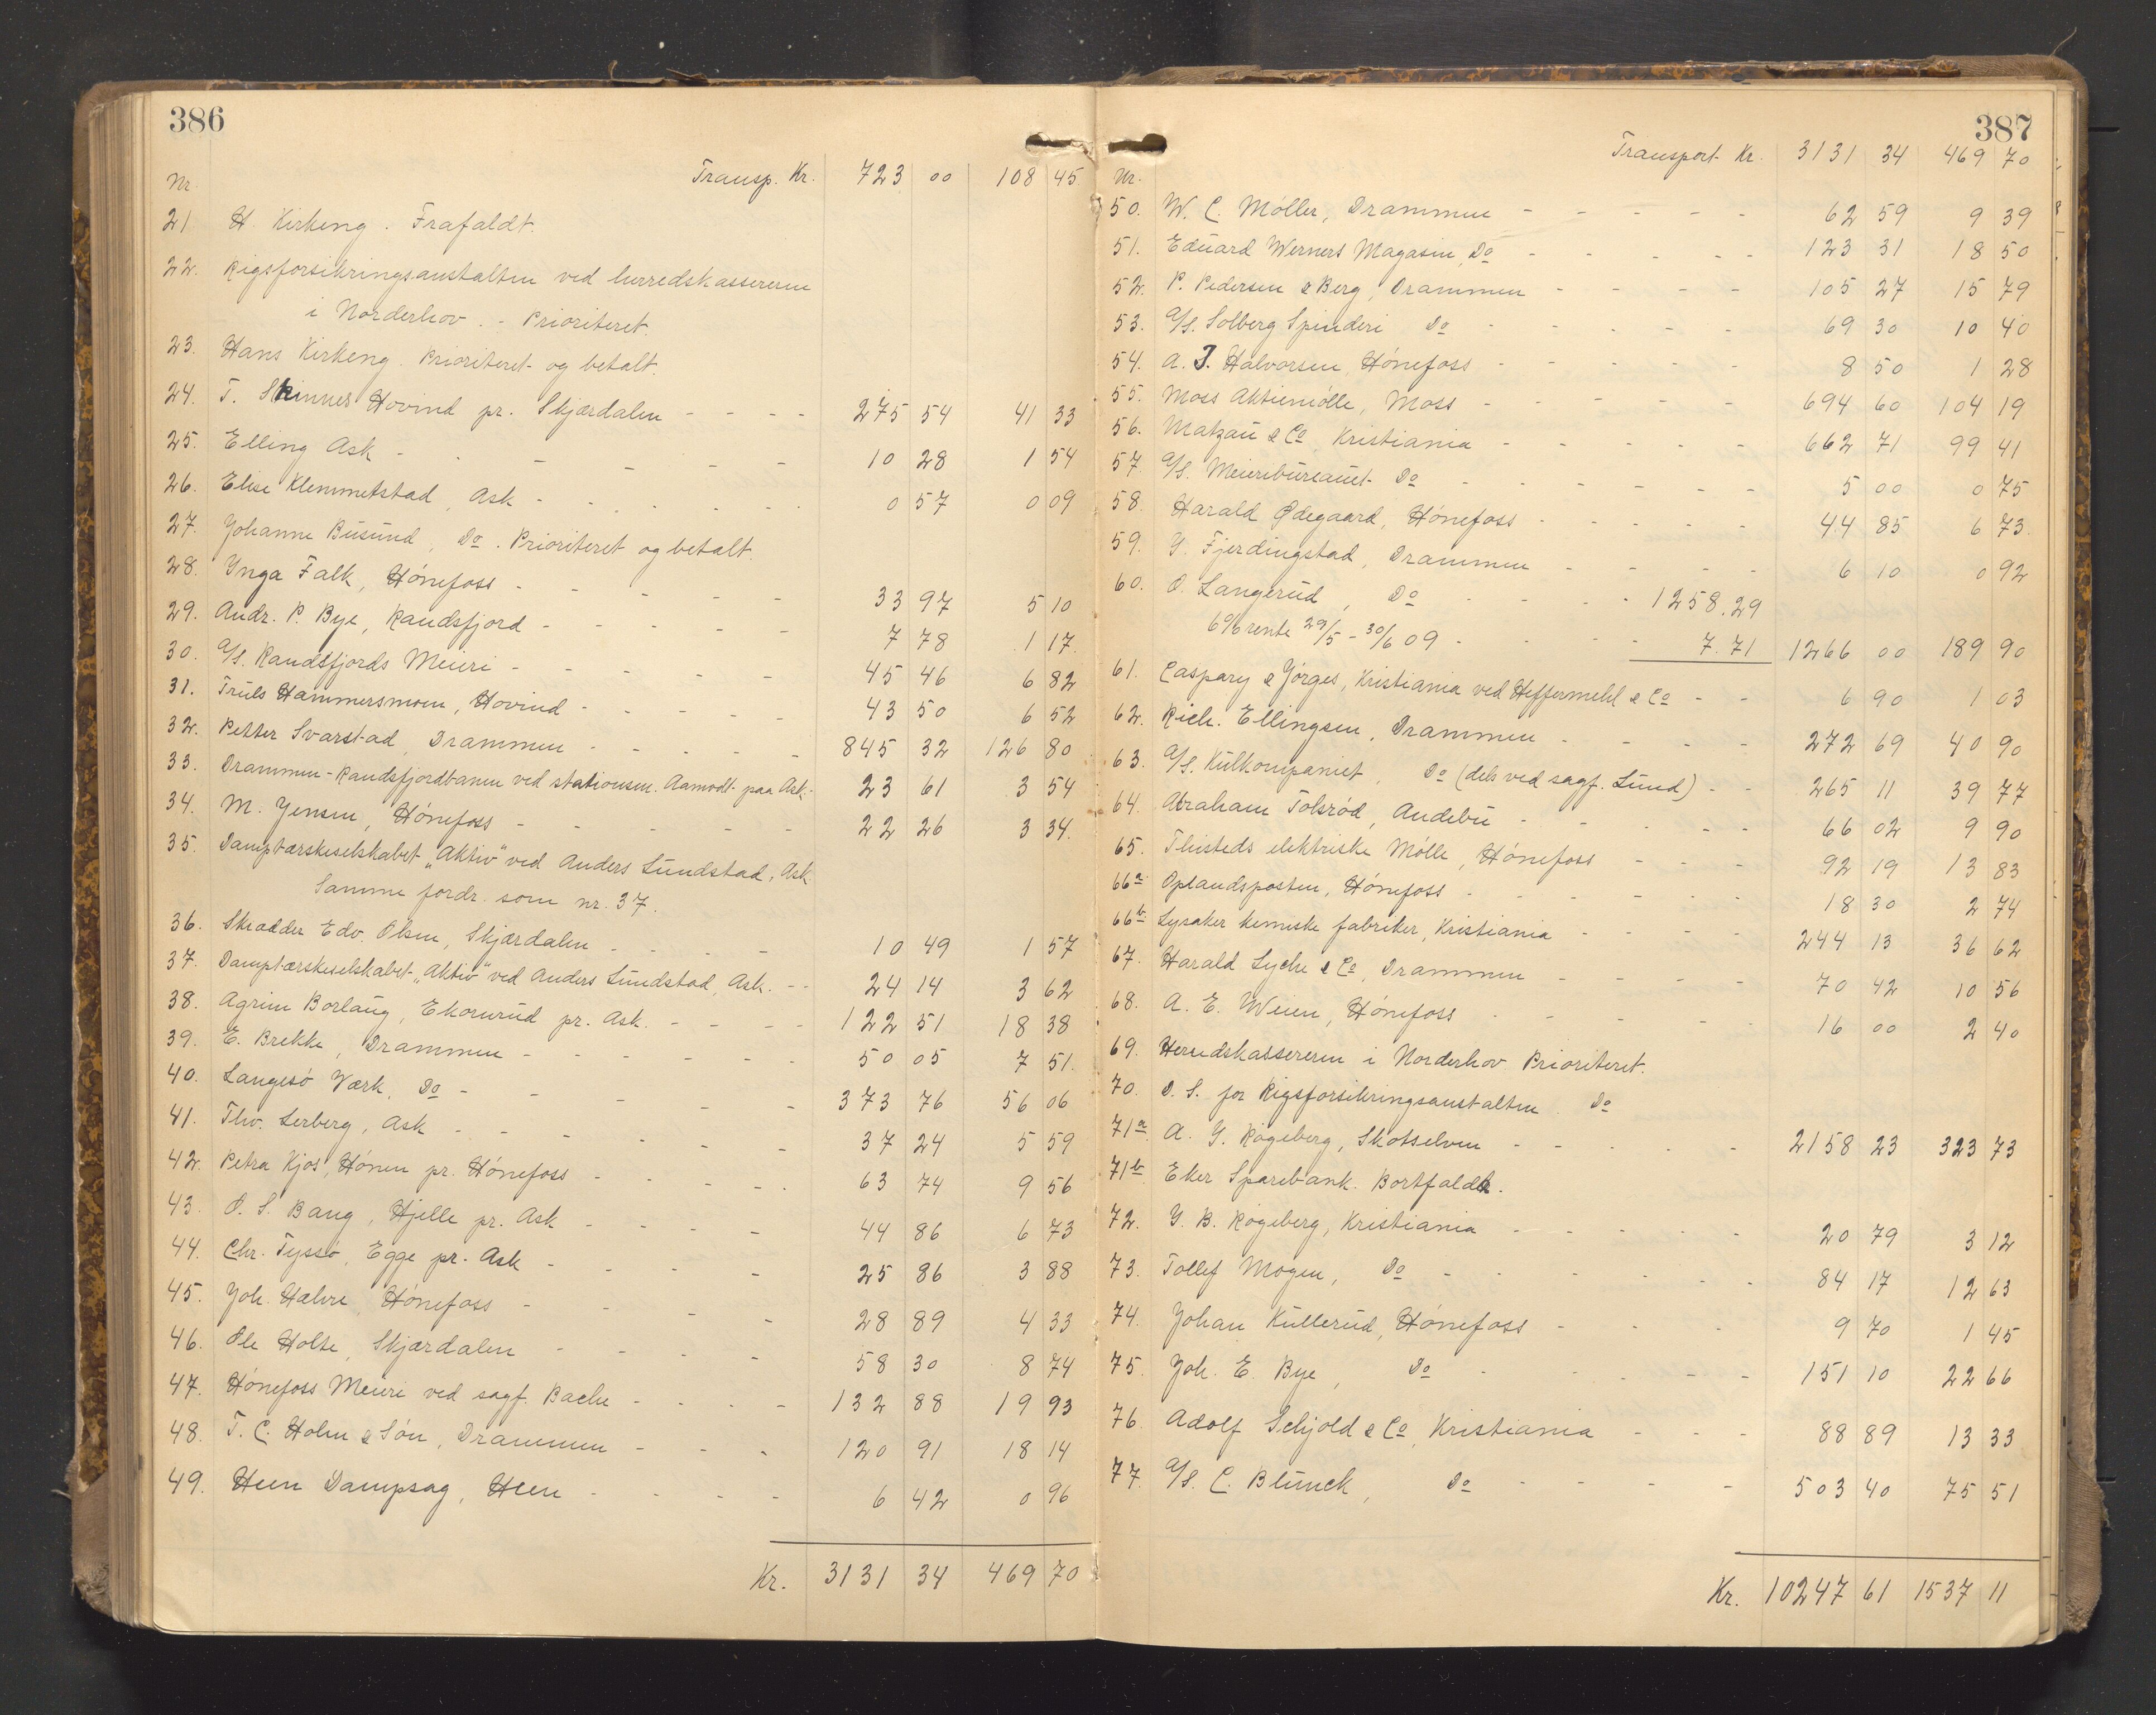 386
Nr. Transp. Kr. 723 00 108 45
21 H. Kirkeng. Frafaldt.
22. Rigsforsikringsanstalten ved herredskassereren
i Norderhov. - Prioriteret.
23. Hans Kirkeng. Prioriteret og betalt.
24. T. Skinnes Hovind pr. Skjærdalen - - - - 275 54 41 33
25. Elling Ask - - - - - - 10 28 1 54
26. Elise Klemmetstad, Ask - - - - - - 0 57 0 09
27. Johanne Busund, Do. Prioriteret og betalt.
28. Ynga Falk, Hönefoss - - - - - - 33 97 5 10
29. Andr. P. Bye, Randsfjord - - - - - 7 78 1 17.
30. A/S. Randsfjords Meieri - - - - - 45 46 6 82
31. Truls Hammersmoen, Hovind - - - - - 43 50 6 52
32. Petter Svarstad, Drammen - - - - - 845 32 126 80
33. Drammen-Randsfjordbanen ved stationsm. Aamodt paa Ask. 23 61 3 54
34. M. Jensen, Hönefoss - - - - - - 22 26 3 34.
35. Damptærskeselskabet "Aktiv" ved Anders Lundstad, Ask
Samme fordr. som nr. 37.
36. Skrædder Edv. Olsen, Skjærdalen - - - - 10 49 1 57
37. Damptærskeselskabet "Aktiv" ved Anders Lundstad, Ask. - - 24 14 3 62
38. Agrim Borlaug, Ekornrud pr. Ask. - - - - 122 51 18 38
39. E. Brekke, Drammen - - - - - - 50 05 7 51.
40. Langesö Værk, Do - - - - - 373 76 56 06
41. Thv. Lerberg, Ask - - - - - - 37 24 5 59
42. Petra Kjos, Hönen pr. Hönefoss - - - - - 63 74 9 56
43. O. S. Bang, Hjelle pr. Ask - - - - 44 86 6 73
44. Chr. Tyssö, Egge pr. Ask - - - - 25 86 3 88
45. Joh. Halvre, Hönefoss - - - - 28 89 4 33
46. Ole Holte, Skjærdalen - - - - 58 30 8 74
47. Hönefoss Meieri ved sagf. Bache - - - - 132 88 19 93
48. T. C. Holm & Sön, Drammen - - - 120 91 18 14
49. Heen Dampsag, Heen - - - - - 6 42 0 96
Kr. 3131 34 469 70
387
Transport Kr. 3131 34 469 70
Nr.
50. W. C. Möller, Drammen - - - - - 62 59 9 39
51. Eduard Werners Magasin, Do - - - - - 123 31 18 50
52. P. Pedersen & Berg, Drammen - - - - 105 27 15 79
53. A/S. Solberg Spinderi Do - - - - - 69 30 10 40
54. A. J. Halvorsen, Hönefoss - - - - - 8 50 1 28
55. Moss Aktiemölle, Moss - - - - - 694 60 104 19
56. Matzau & Co, Kristiania - - - - - 662 71 99 41
57 A/S. Meieribureauet Do - - - - - - 5 00 0 75
58. Harald Ødegaard, Hönefoss - - - - - 44 85 6 73.
59. G. Fjerdingstad, Drammen - - - - - 6 10 0 92
60. O. Langerud, Do - - - - 1258.29
6% rente 29/5 - 30/6 09 - - - - 7.71 1266 00 189 90
61. Caspary & Jörges, Kristiania ved Heffermehl & Co - - 6 90 1 03
62. Rich. Ellingsen, Drammen - - - - - 272 69 40 90
63. A/S. Kulkompaniet, Do (dels ved sagf. Lund) - - 265 11 39 77
64. Abraham Tolsröd, Andebu - - - - - 66 02 9 90
65. Thisteds elektriske Mölle, Hönefoss - - - 92 19 13 83
66a Oplandsposten, Hönefoss - - - - - - 18 30 2 74
66b Lysaker kemiske fabriker, Kristiania - - - - 244 13 36 62
67. Harald Lyche & Co, Drammen - - - - - 70 42 10 56
68. A. E. Weien, Hönefoss - - - - - 16 00 2 40
69. Herredskassereren i Norderhov Prioriteret.
70. D. S. for Rigsforsikringsanstalten. Do
71a A. G. Rögeberg, Skotselven - - - - - 2158 23 323 73
71b Eker Sparebank. Bortfaldt.
72. G. B. Rögeberg, Kristiania - - - - - 20 79 3 12
73. Tollef Mogen, Do - - - - - - 84 17 12 63
74. Johan Kullerud, Hönefoss - - - 9 70 1 45
75. Joh. E. Bye, Do - - - - - 151 10 22 66
76. Adolf Schjold & Co, Kristiania - - - 88 89 13 33
77. A/S. C. Blunck, Do - - - - 503 40 75 51
Kr. 10247 61 1537 11